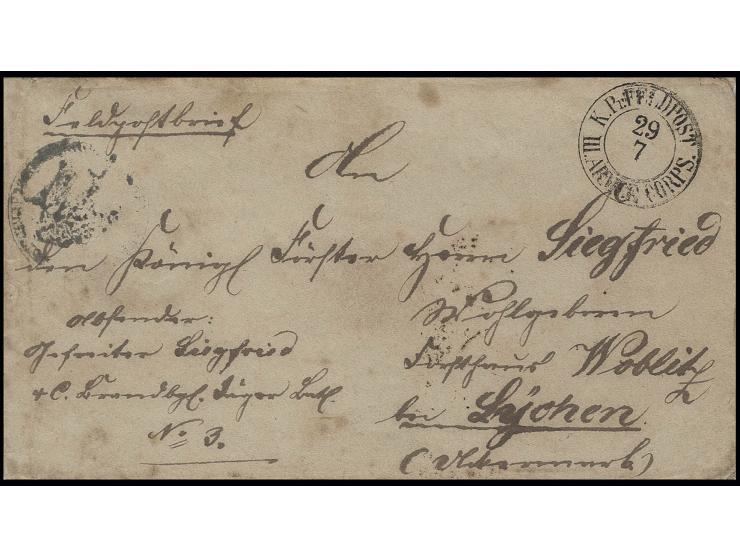 Feldpostbrief
K. Pr. FELDPOST
29
7
III ARMEE CORPS.
An
den Königl Förster Herrn Siegfried
Wohlgeboren
Forsthaus Woblitz
bei Lÿchen
(Uckermark)
Absender:
Gefreiter Siegfried
4 C. Brandbgl. Jäger Batl.
No 3.